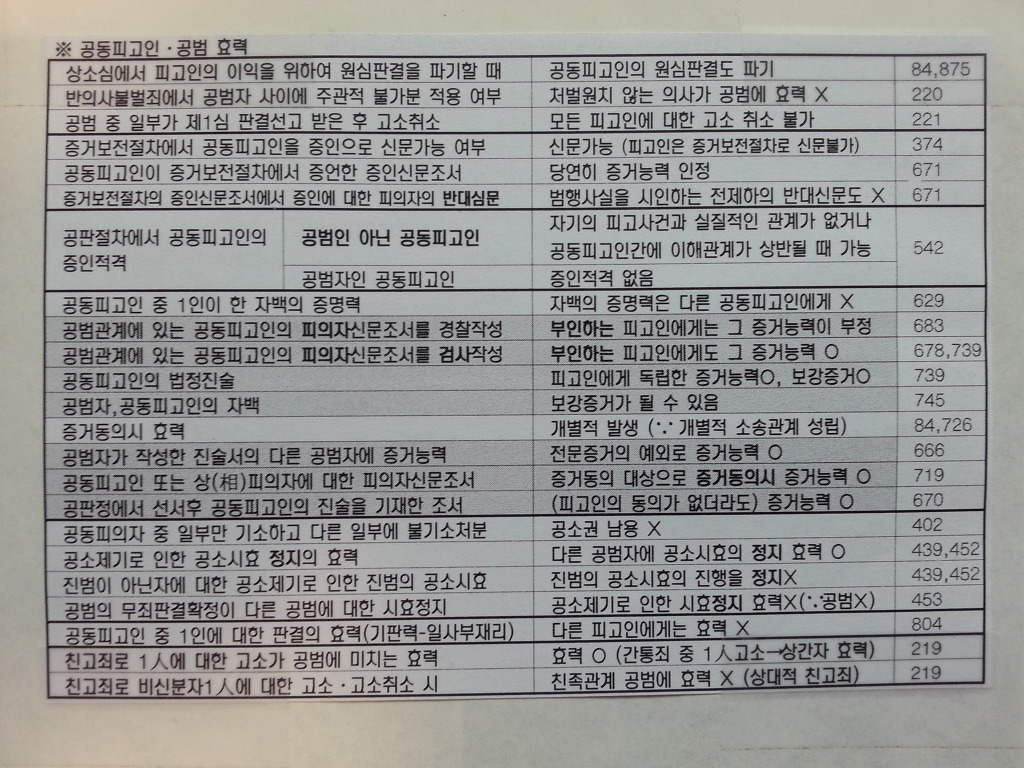 ※ 공동피고인·공범 효력
상소심에서 피고인의 이익을 위하여 원심판결을 파기할 때 공동피고인의 원심판결도 파기 84,875
반의사불벌죄에서 공범자 사이에 주관적 불가분 적용 여부 처벌원치 않는 의사가 공범에 효력 X 220
공범 중 일부가 제1심 판결선고 받은 후 고소취소 모든 피고인에 대한 고소 취소 불가 221
증거보전절차에서 공동피고인을 증인으로 신문가능 여부 신문가능 (피고인은 증거보전절차로 신문불가) 374
공동피고인이 증거보전절차에서 증언한 증인신문조서 당연히 증거능력 인정 671
증거보전절차의 증인신문조서에서 증인에 대한 피의자의 반대심문 범행사실을 시인하는 전제하의 반대신문도 X 671
공판절차에서 공동피고인의 증인적격 공범인 아닌 공동피고인 자기의 피고사건과 실질적인 관계가 없거나 공동피고인간에 이해관계가 상반될 때 가능 542
공범자인 공동피고인 증인적격 없음
공동피고인 중 1인이 한 자백의 증명력 자백의 증명력은 다른 공동피고인에게 X 629
공범관계에 있는 공동피고인의 피의자신문조서를 경찰작성 부인하는 피고인에게는 그 증거능력이 부정 683
공범관계에 있는 공동피고인의 피의자신문조서를 검사작성 부인하는 피고인에게도 그 증거능력 O 678,739
공동피고인의 법정진술 피고인에게 독립한 증거능력O, 보강증거O 739
공범자,공동피고인의 자백 보강증거가 될 수 있음 745
증거동의시 효력 개별적 발생 (∵ 개별적 소송관계 성립) 84,726
공범자가 작성한 진술서의 다른 공범자에 증거능력 전문증거의 예외로 증거능력 O 666
공동피고인 또는 상(相)피의자에 대한 피의자신문조서 증거동의 대상으로 증거동의시 증거능력 O 719
공판정에서 선서후 공동피고인의 진술을 기재한 조서 (피고인의 동의가 없더라도) 증거능력 O 670
공동피의자 중 일부만 기소하고 다른 일부에 불기소처분 공소권 남용 X 402
공소제기로 인한 공소시효 정지의 효력 다른 공범자에 공소시효의 정지 효력 O 439,452
진범이 아닌자에 대한 공소제기로 인한 진범의 공소시효 진범의 공소시효의 진행을 정지X 439,452
공범의 무죄판결확정이 다른 공범에 대한 시효정지 공소제기로 인한 시효정지 효력X(∵공범X) 453
공동피고인 중 1인에 대한 판결의 효력(기판력-일사부재리) 다른 피고인에게는 효력 X 804
친고죄로 1人에 대한 고소가 공범에 미치는 효력 효력 O (간통죄 중 1人고소→상간자 효력) 219
친고죄로 비신분자1人에 대한 고소·고소취소 시 친족관계 공범에 효력 X (상대적 친고죄) 219